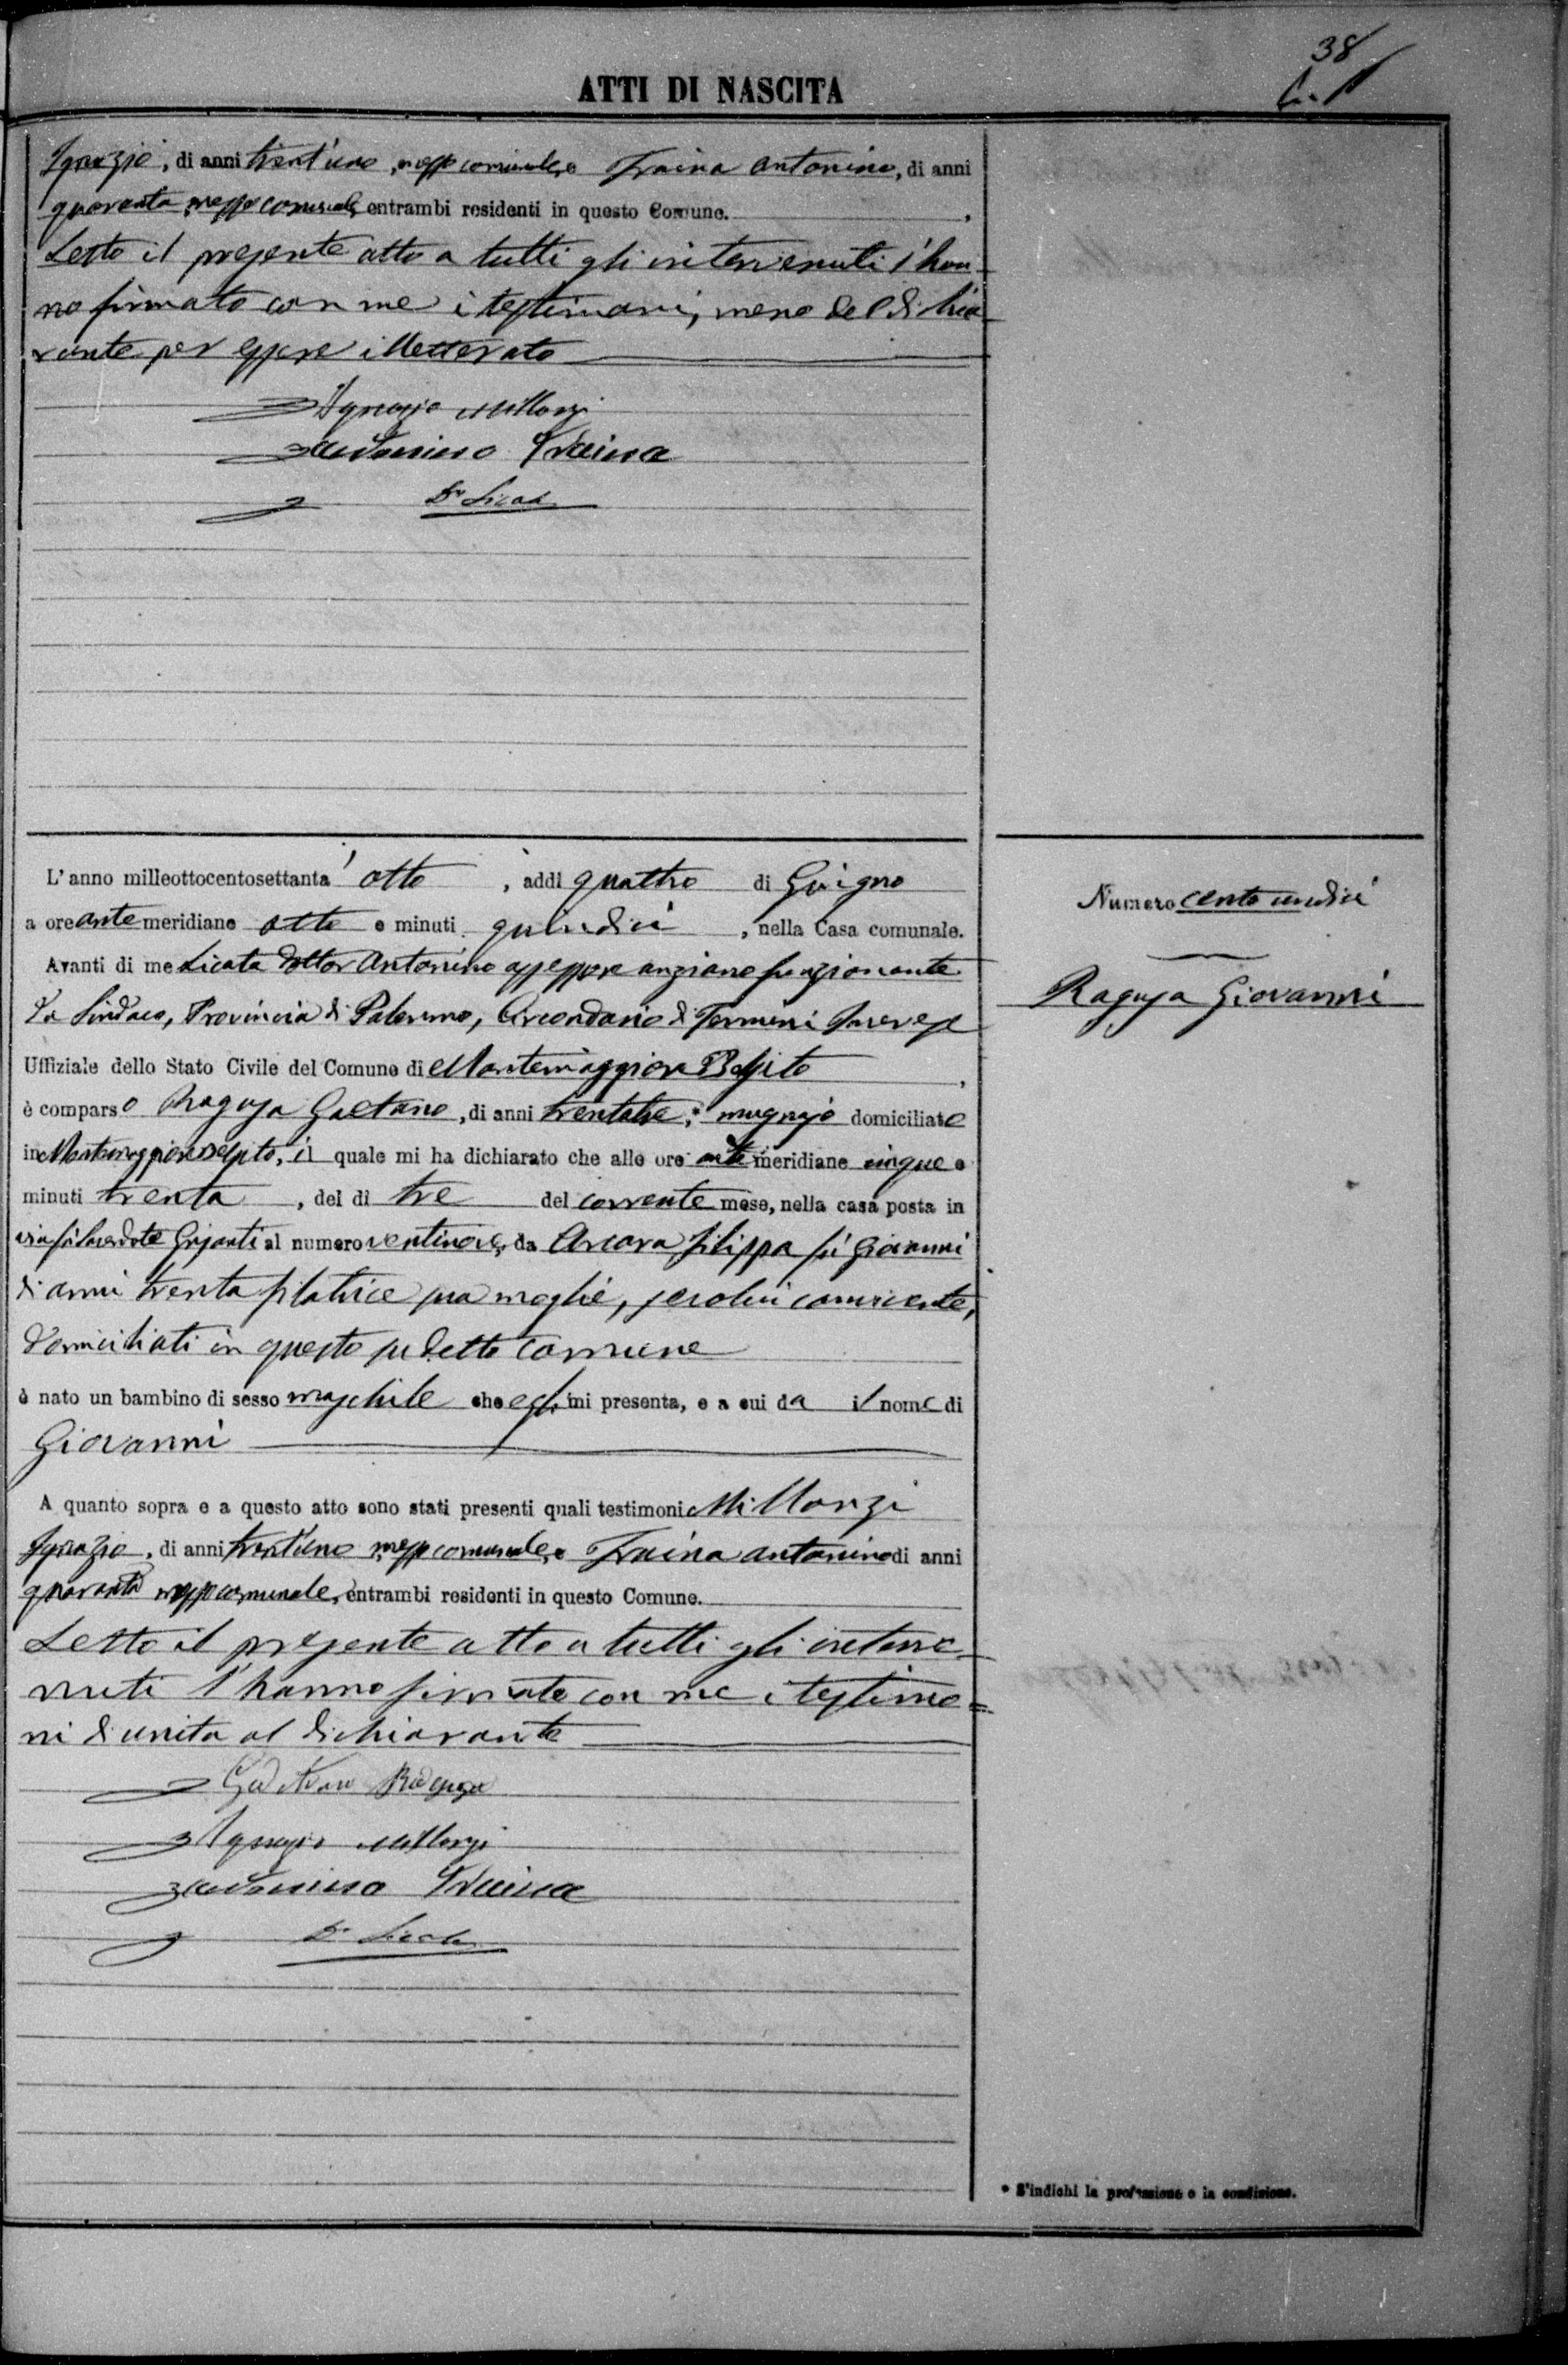 38
ATTI DI NASCITA
Ignazio, di anni trent'uno, messo comunale, e Traina Antonino, di anni
quaranta messo comunale, entrambi residenti in questo Comune.
Letto il presente atto a tutti gli intervenuti l'han-
no firmato con me i testimoni, meno del dichia-
rante per essere illetterato
Ignazio Millonzi
Antonino Traina
Dr Licata
L'anno milleottocentosettanta otto, addì quattro di Giugno
a ore ante meridiane otto e minuti quindici, nella Casa comunale.
Avanti di me Licata Dottor Antonino assessore anziano funzionante
da Sindaco, Provincia di Palermo, Circondario di Termini Imerese
Uffiziale dello Stato Civile del Comune di Montemaggiore Belsito,
è comparso Ragusa Gaetano, di anni trentatre, * mugnajo domiciliato
in Montemaggiore Belsito, il quale mi ha dichiarato che alle ore ante meridiane cinque e
minuti trenta, del dì tre del corrente mese, nella casa posta in
via Sacerdote al numero ventinove, da Arcara Filippa fù Giovanni
di anni trenta filatrice sua moglie, seco lui convivente,
domiciliati in questo sudetto comune
è nato un bambino di sesso maschile che egli mi presenta, e a cui da il nome di
Giovanni
A quanto sopra e a questo atto sono stati presenti quali testimoni Millonzi
Ignazio, di anni trent'uno messo comunale, e Traina Antonino di anni
quaranta messo comunale, entrambi residenti in questo Comune.
Letto il presente atto a tutti gli interve-
nuti l'hanno firmato con me i testimo=
ni di unita al dichiarante
Gaetano Ragusa
Ignazio Millonzi
Antonino Traina
Dr Licata
Numero cento undici
Ragusa Giovanni
* S'indichi la professione o la condizione.